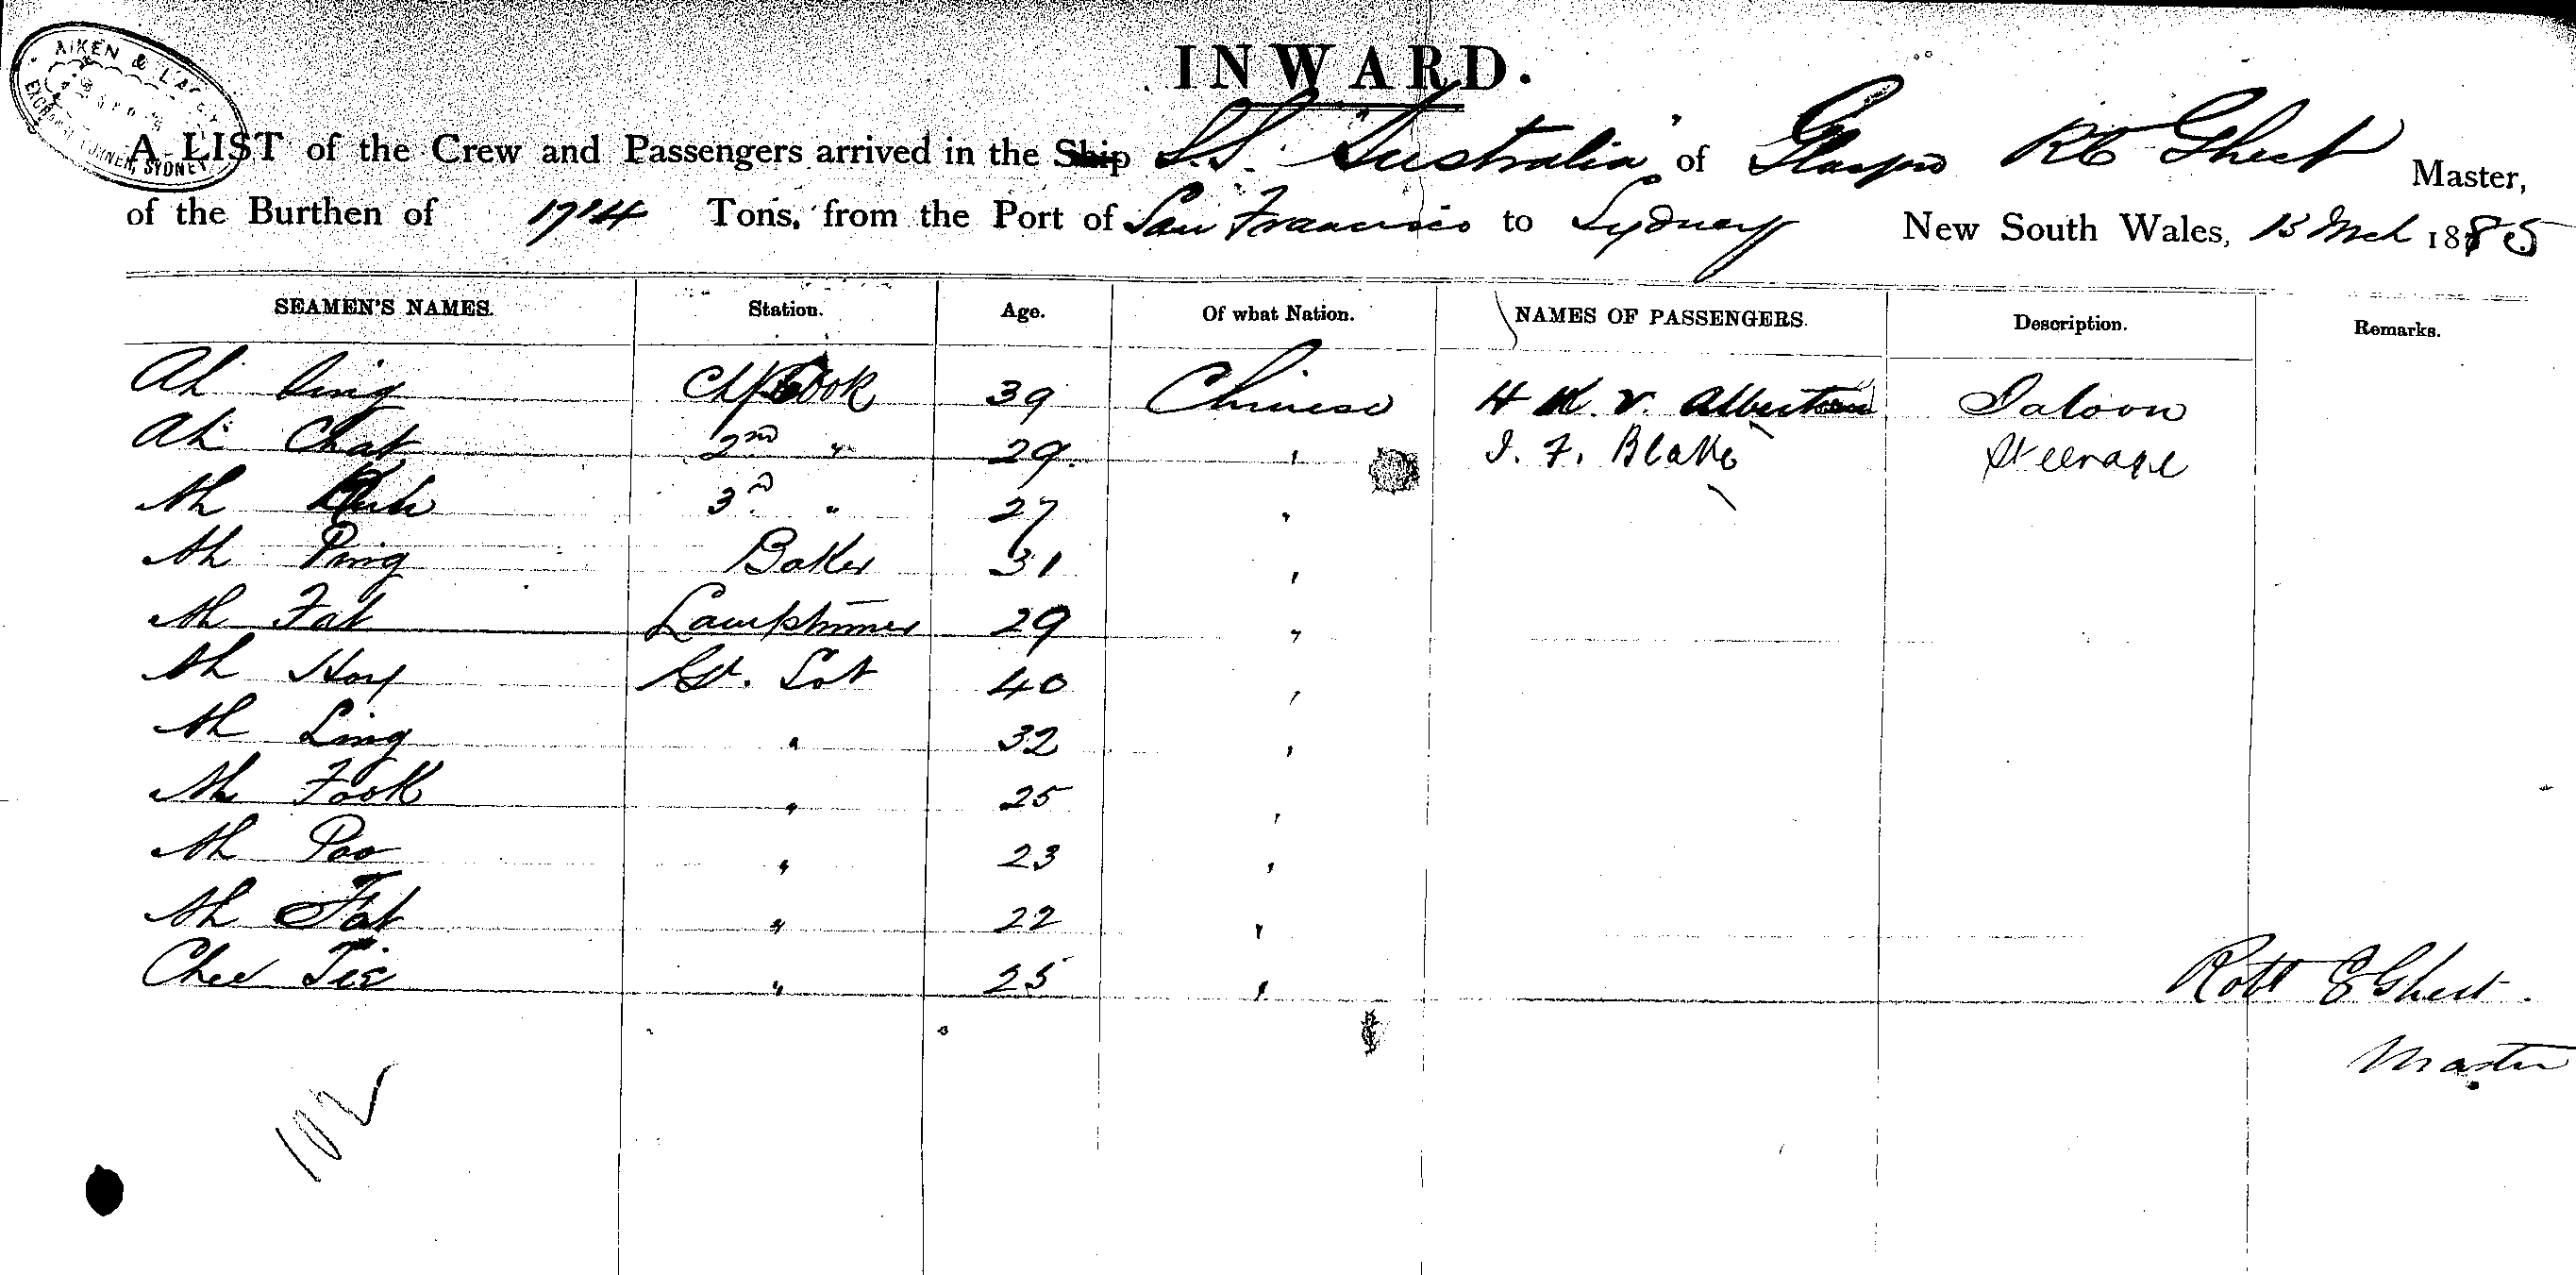 AIKEN &
SYDNEY
INWARD.
A LIST of the Crew and Passengers arrived in the Ship S.S. "Australia" of Glasgow R E Ghest Master,
of the Burthen of 1714 Tons, from the Port of San Francisco to Sydney New South Wales, 13 Mch 1885
SEAMEN'S NAMES. Station. Age. Of what Nation. NAMES OF PASSENGERS. Description. Remarks.
Ah Cook 39 Chinese H K. V. Saloon
Ah Chat 2nd " 29. " I. F. Blake Steerage
Ah 3rd " 27 "
Ah Ping Baker 31 "
Ah Fat Lamptrimmer 29 "
Ah Hoy 40 "
Ah Ling " 32 "
Ah Fook " 25 "
Ah Poo " 23 "
Ah Fat " 22 "
Chee Tie " 25 " Robt E Ghest.
Master
102